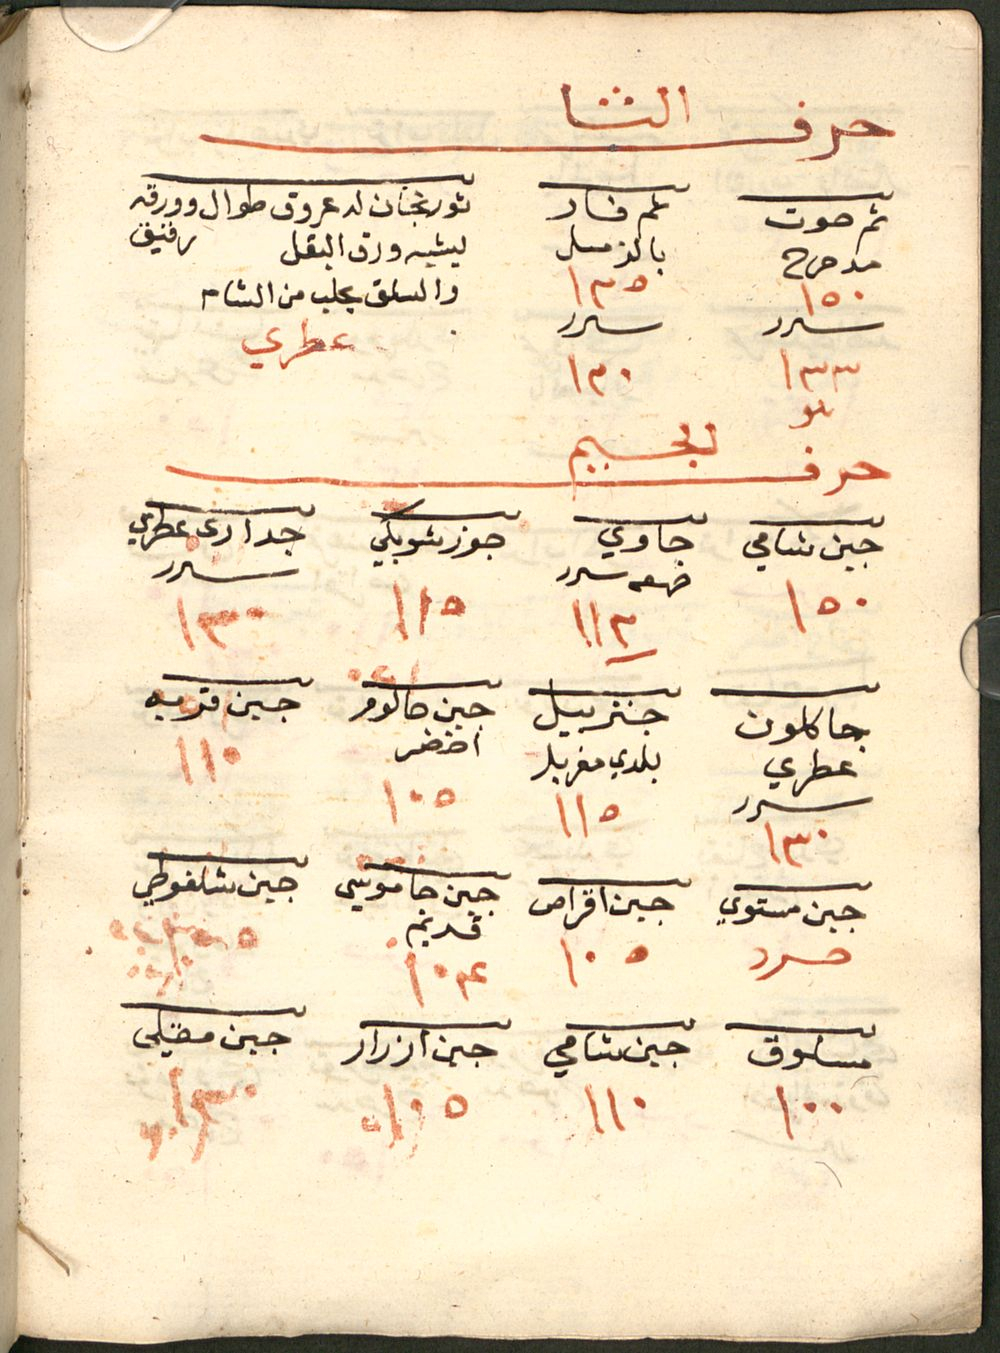 حرف الثا
ثم حوت
مدحرج
١٥٠
سرر
١٣٣
ثم فار
١٣٥
سرر
١٣٠
له عروق طوال وورقه
يشبه ورق البقل رقيق
والسلق يجلب من الشام
عطري
حرف الجيم
جبن شامي
١٥٠
جاوي
سرر
١١٣
جوز شوبكي
١١٥
جداري عطري
سرر
١٣٠
عطري
سرر
١٣٠
جنزبيل
بلدي مغربل
١١٥
جبن حالوم
اخضر
١٠٥
جبن
١١٠
جبن مستوي
جبن اقراص
١٠٥
جبن جاموسي
قديم
١٠٤
جبن شلفوطي
مسلوق
١٠٠
جبن شامي
١١٠
جبن ازرار
١٠٥
جبن مقيلي
١٣٠